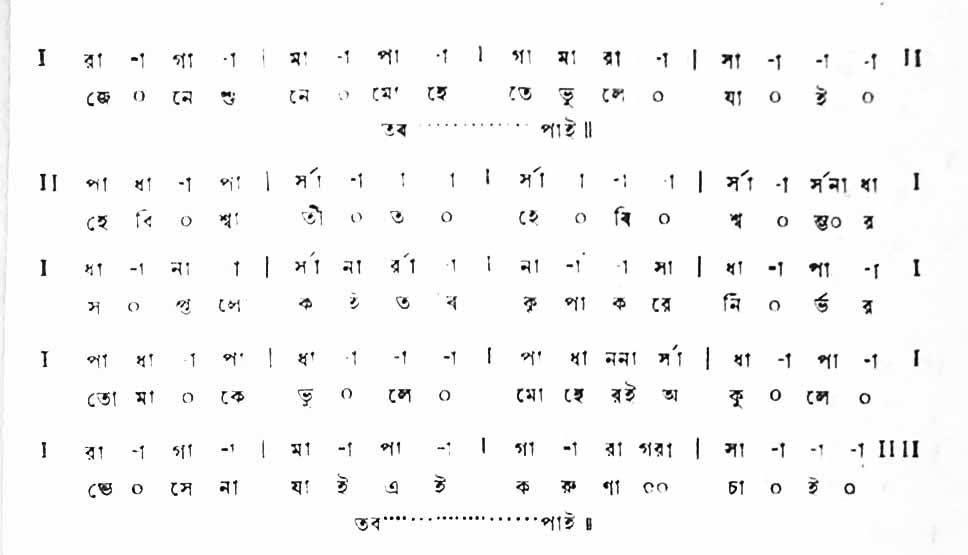 I রা -া গা -া | মা -া পা -া | গা মা রা -া | সা -া -া -া II
জে ০ নে শু নে ০ মো হে তে ভু লে ০ যা ০ ই ০
তব ·············· পাই॥
II পা ধা -া পা | র্সা -া া া | র্সা া -া া | র্সা -া র্সনা ধা I
হে বি ০ শ্বা তী ০ ত ০ হে ০ বি ০ শ্ব ০ ম্ভ০ র
I ধা -া না া | র্সা না র্রা া | না -া া সা | ধা -া পা -া I
স ০ প্ত লো ক ই ত ব কৃ পা ক রে নি ০ র্ভ র
I পা ধা -া পা | ধা -া -া -া | পা ধা ননা র্সা | ধা -া পা -া I
তো মা ০ কে ভু ০ লে ০ মো হে রই অ কূ ০ লে ০
I রা -া গা -া | মা -া পা -া | গা -া রা গরা | সা -া -া -া II II
ভে ০ সে না যা ই এ ই ক রু ণা ০০ চা ০ ই ০
তব·······················পাই॥